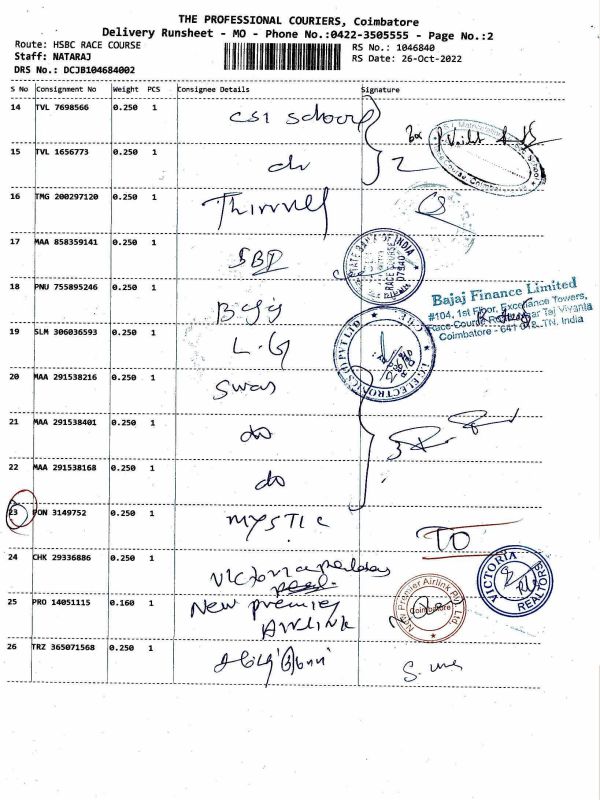 THE PROFESSIONAL COURIERS, Coimbatore
Delivery Runsheet - MO - Phone No.:0422-3505555 - Page No.:2
Route: HSBC RACE COURSE
RS No.: 1046840
Staff: NATARAJ
RS Date: 26-Oct-2022
DRS No.: DCJB104684002
S No Consignment No Weight PCS Consignee Details Signature
14 TVL 7698566 0.250 1 CSI School
15 TVL 1656773 0.250 1 do
16 TMG 200297120 0.250 1
17 MAA 858359141 0.250 1 SBI
STATE BANK OF INDIA
RACE COURSE
18 PNU 755895246 0.250 1
Bajaj Finance Limited
#104, 1st Floor, Excellance Towers,
Race Course Taj Vivanta
Coimbatore - 641 TN. India
19 SLM 306036593 0.250 1 L.G
LG ELECTRONICS (I) PVT LTD
20 MAA 291538216 0.250 1 Swas
21 MAA 291538401 0.250 1 do
22 MAA 291538168 0.250 1 do
23 PON 3149752 0.250 1 MYSTIC TO
24 CHK 29336886 0.250 1 Victoria
VICTORIA REALTORS
25 PRO 14051115 0.160 1 New premier
AIRLINK
New Premier Airlink Pvt. Ltd.
Coimbatore
26 TRZ 365071568 0.250 1